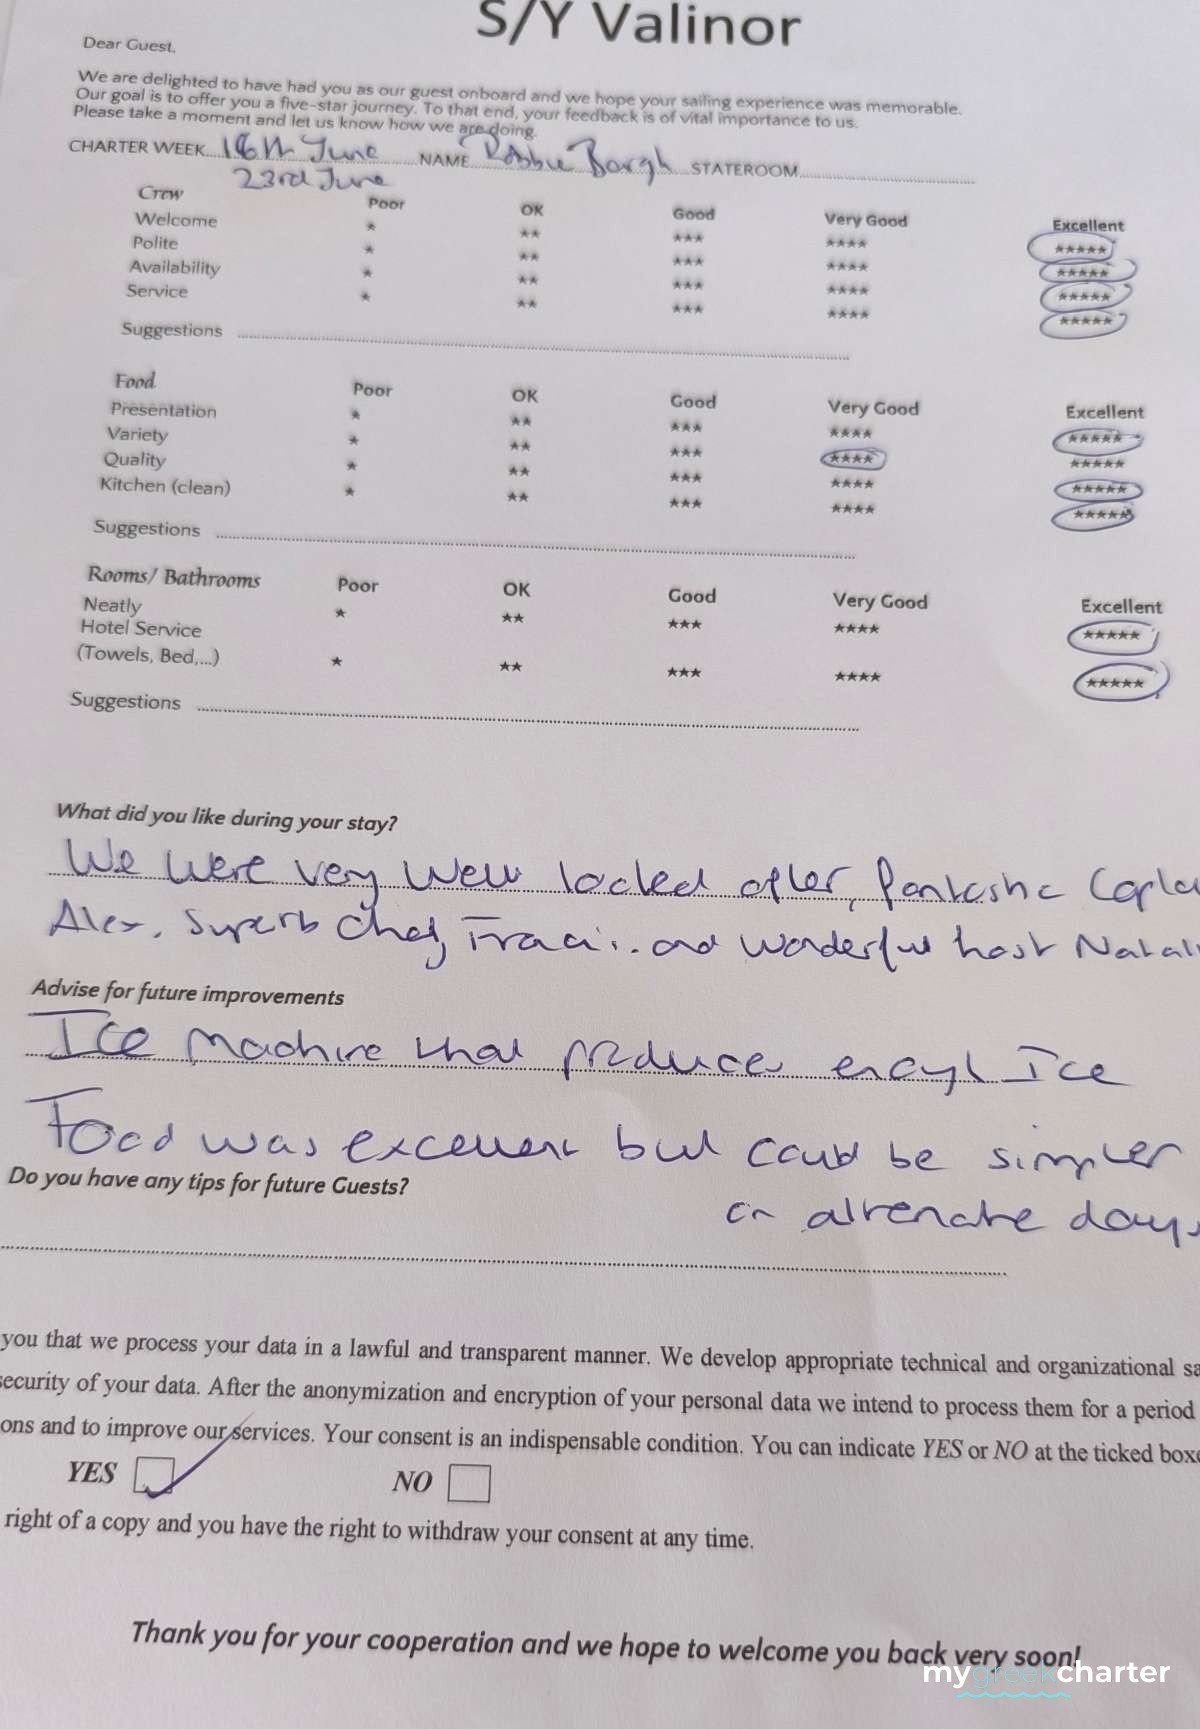 S/Y Valinor
Dear Guest,
We are delighted to have had you as our guest onboard and we hope your sailing experience was memorable.
Our goal is to offer you a five-star journey. To that end, your feedback is of vital importance to us.
Please take a moment and let us know how we are doing.
CHARTER WEEK 16th June NAME Robbie Bargh STATEROOM
23rd June
Crew Poor OK Good Very Good Excellent
Welcome * ** *** **** *****
Polite * ** *** **** *****
Availability * ** *** **** *****
Service * ** *** **** *****
Suggestions
Food Poor OK Good Very Good Excellent
Presentation * ** *** **** *****
Variety * ** *** **** *****
Quality * ** *** **** *****
Kitchen (clean) * ** *** **** *****
Suggestions
Rooms/ Bathrooms Poor OK Good Very Good Excellent
Neatly * ** *** **** *****
Hotel Service
(Towels, Bed,...) * ** *** **** *****
Suggestions
What did you like during your stay?
We were very well looked after, fantastic Capta
Alex. Superb Chef, and wonderful host Natali
Advise for future improvements
Ice machine that produces enough Ice
Food was excellent but could be simpler
on alternate days
Do you have any tips for future Guests?
you that we process your data in a lawful and transparent manner. We develop appropriate technical and organizational sa
security of your data. After the anonymization and encryption of your personal data we intend to process them for a period
ons and to improve our services. Your consent is an indispensable condition. You can indicate YES or NO at the ticked boxe
YES NO
right of a copy and you have the right to withdraw your consent at any time.
Thank you for your cooperation and we hope to welcome you back very soon!
mygreekcharter